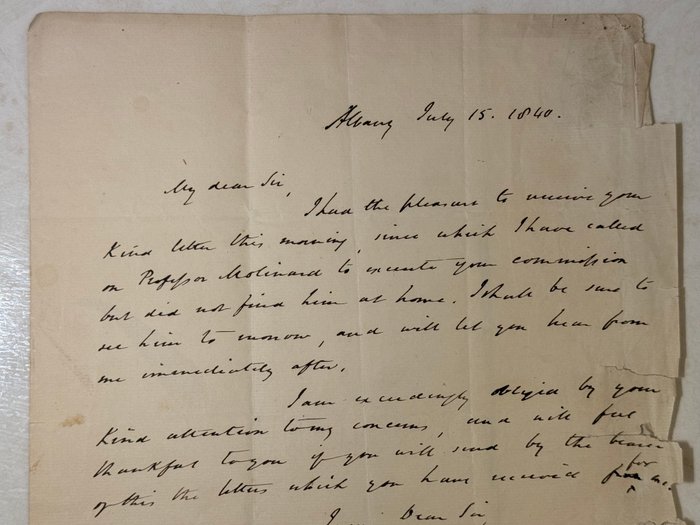 Albany July 15. 1840.
My dear Sir,
I had the pleasure to receive your
Kind letter this morning, since which I have called
on Professor Molinard to execute your commission
but did not find him at home. I shall be sure to
see him to morrow, and will let you hear from
me immediately after.
I am exceedingly obliged by your
Kind attention to my concerns, and will feel
thankful to you if you will send by the bearer
of this the letters which you have received for me.
Dear Sir